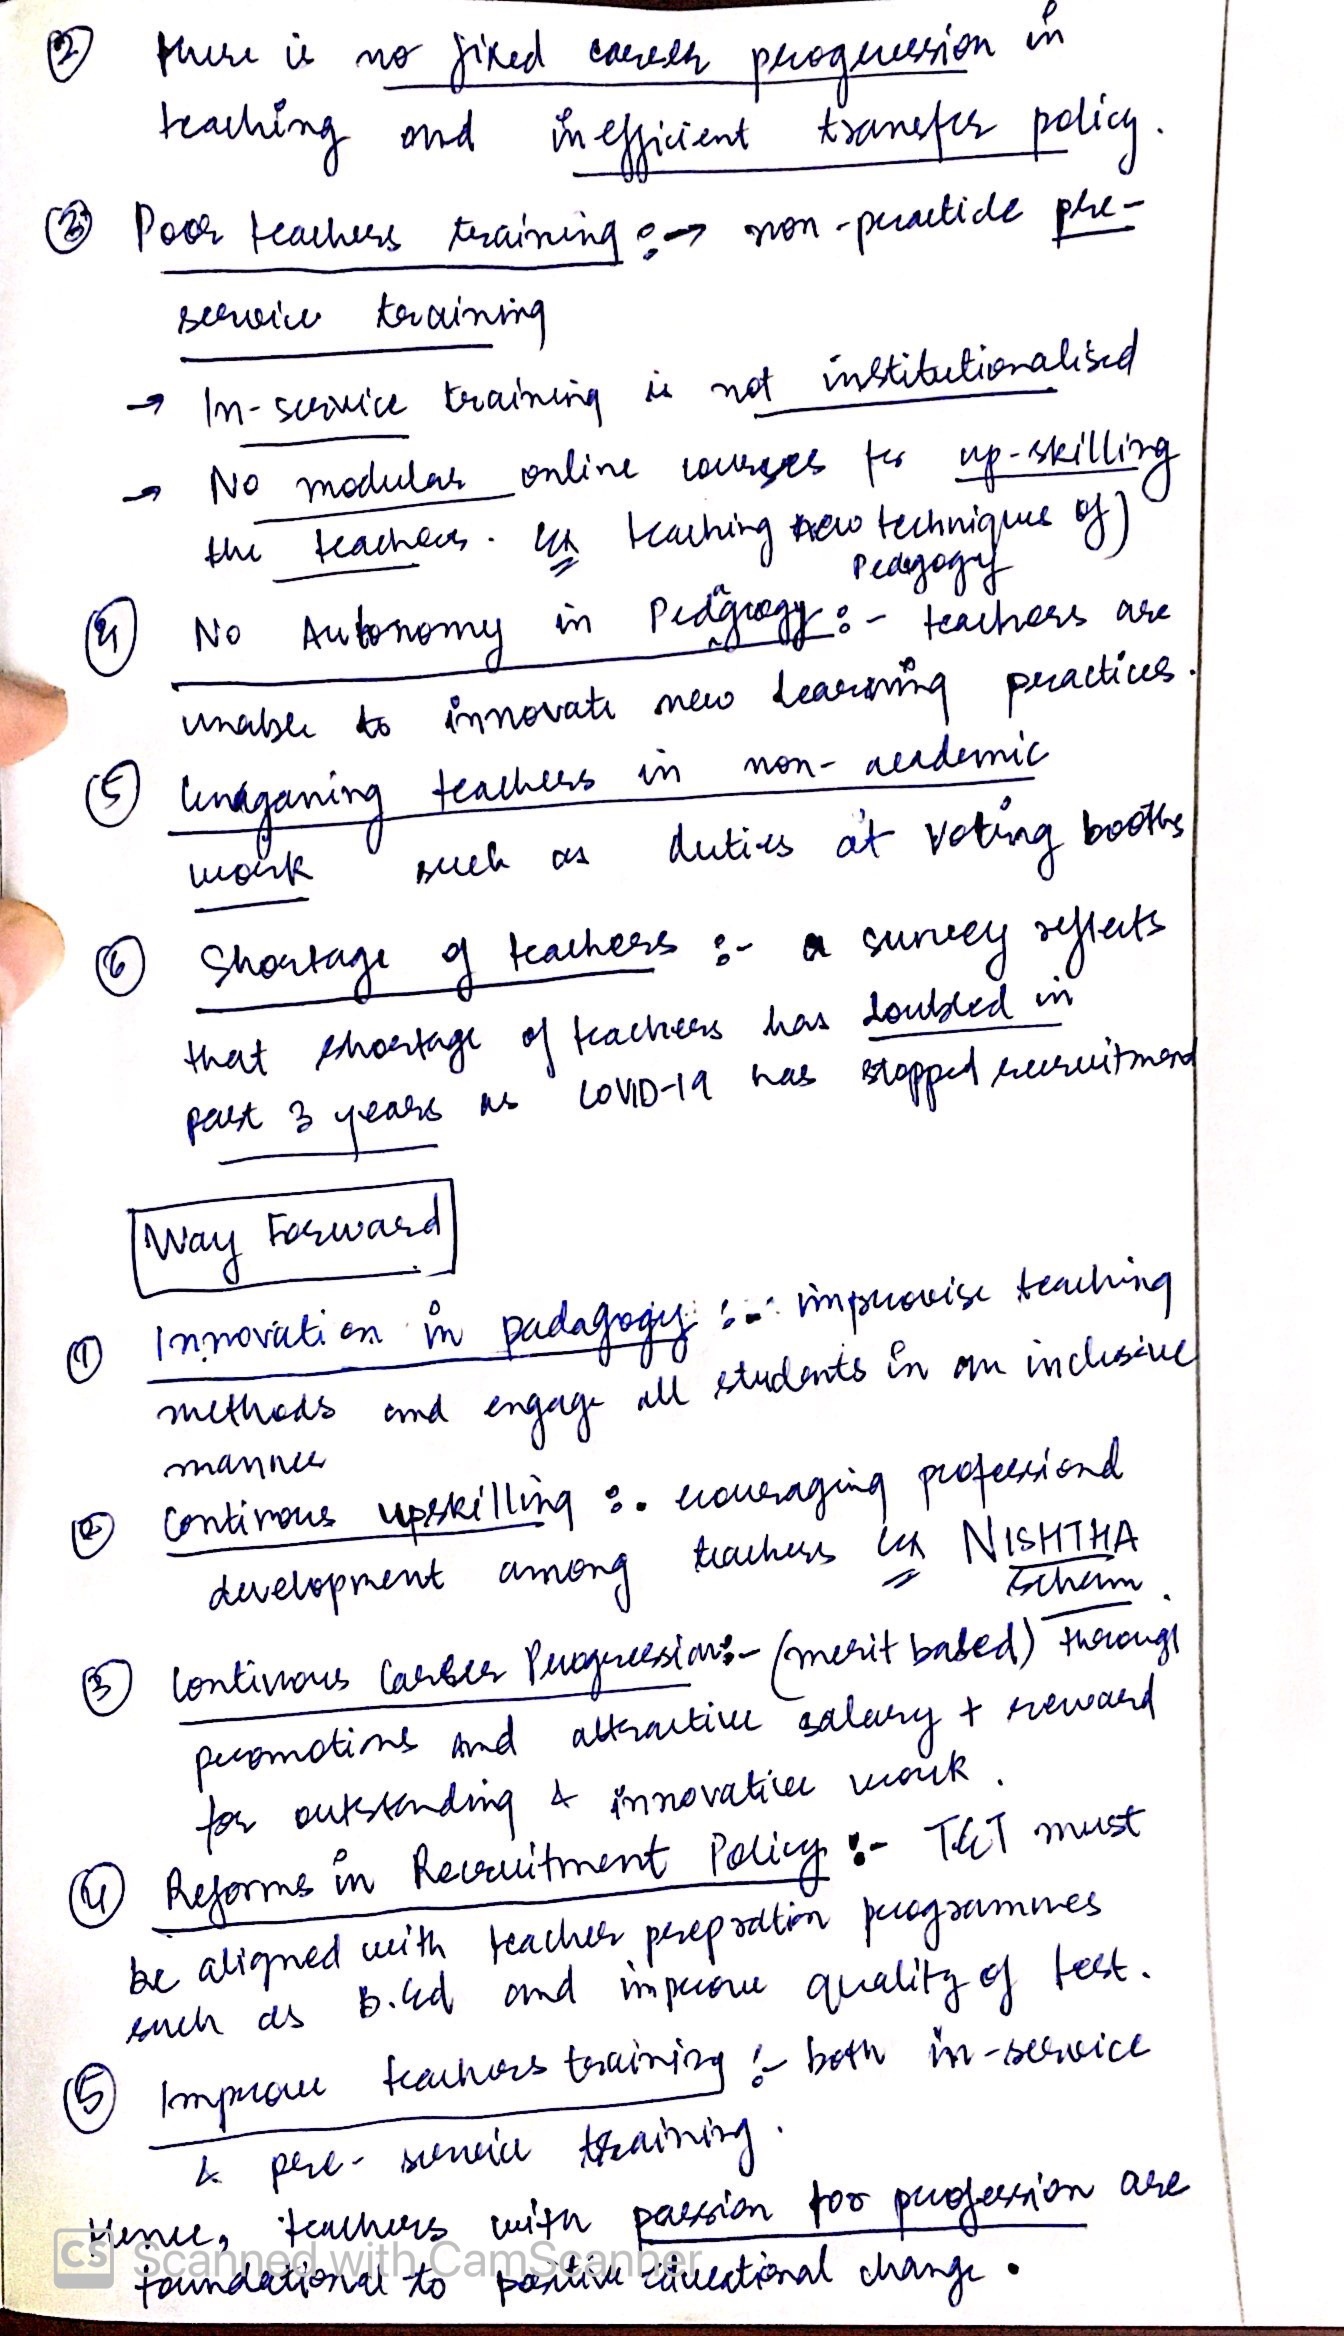 ② there is no fixed career progression in
teaching and inefficient transfer policy.
③ Poor teachers training :→ non-practicle pre-
service training
→ In-service training is not institutionalised
→ No modular online courses for up-skilling
the teachers. Ex teaching new techniques of)
Pedagogy
④ No Autonomy in Pedagogy :- teachers are
unable to innovate new learning practices.
⑤ teachers in non-academic
work such as duties at voting booths
⑥ Shortage of teachers :- a survey reflects
that shortage of teachers has doubled in
past 3 years as COVID-19 has stopped recruitment
Way Forward
① Innovation in padagogy :- improvise teaching
methods and engage all students in an inclusive
manner
② Continous upskilling :- professional
development among teachers Ex NISHTHA
Scheme.
③ Continous Career Progression:- (merit based) through
promotions and attractive salary + reward
for outstanding & innovative work.
④ Reforms in Recruitment Policy :- TET must
be aligned with teacher prepration programmes
such as B.Ed and improve quality of test.
⑤ Improve teachers training :- both in-service
& pre-service training.
Hence, teachers with passion for profession are
foundational to positive educational change.
CS Scanned with CamScanner